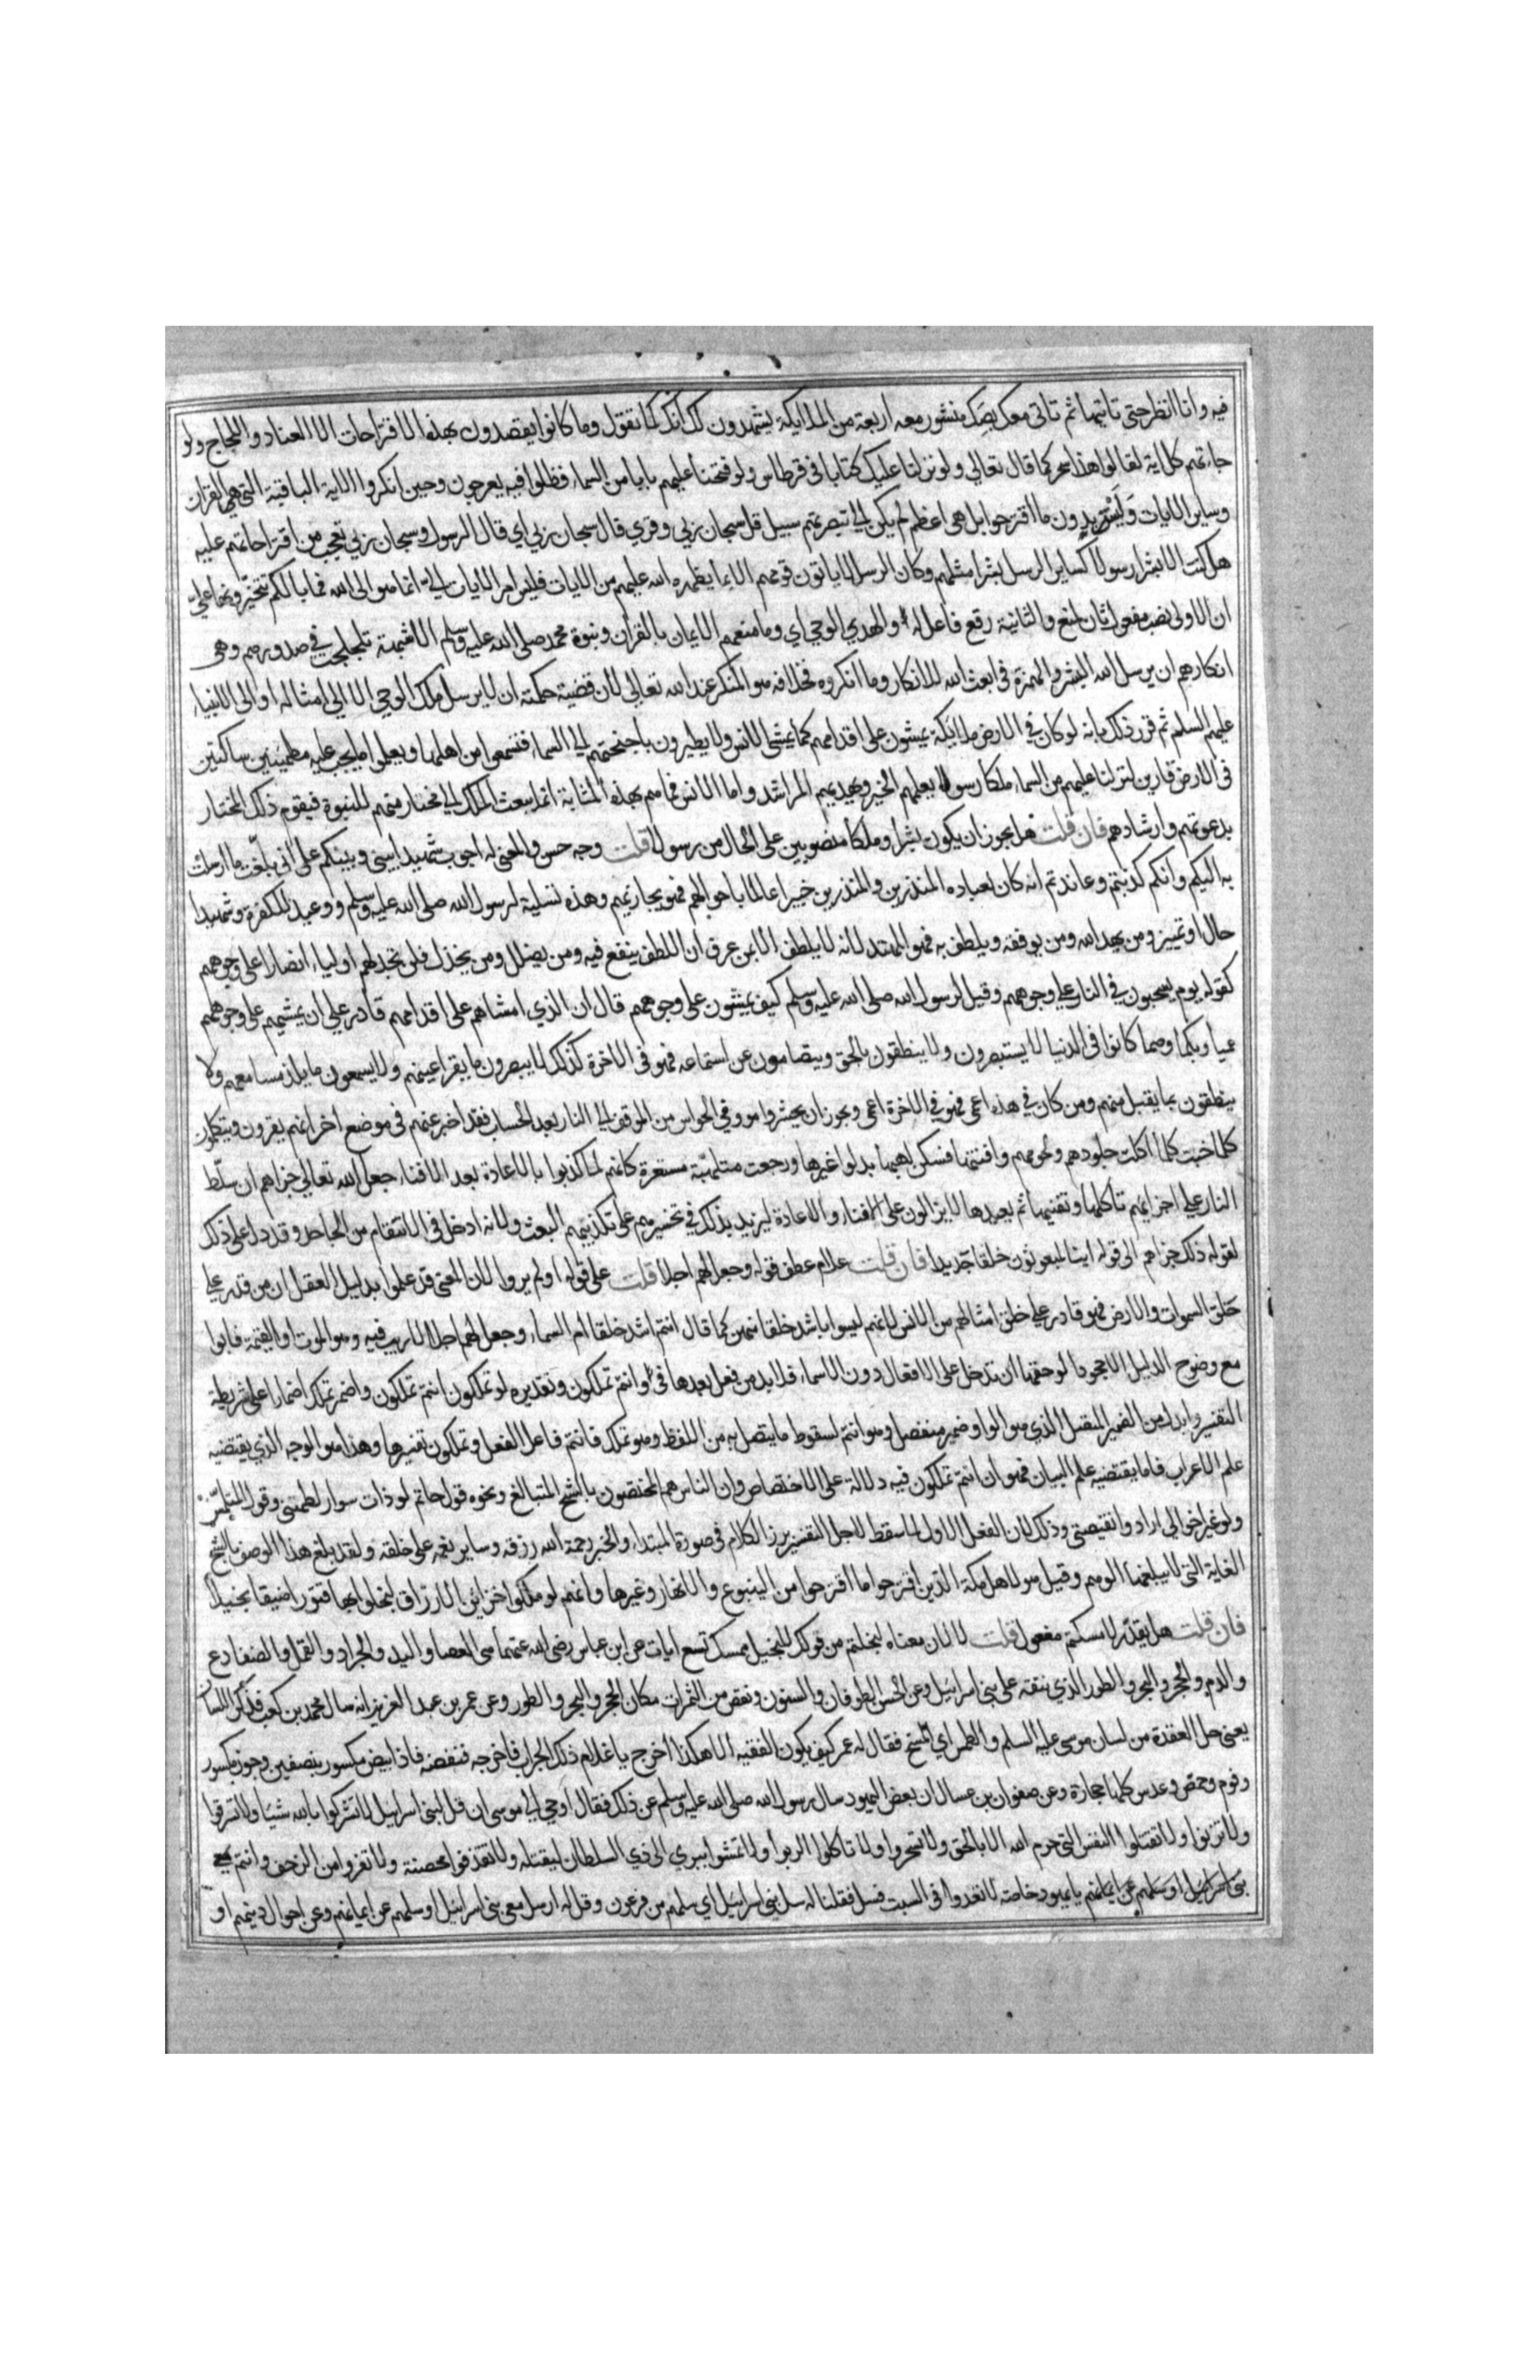 فيه وانا انظر حتى تاتيها ثم تاتي معك بصك منشور معه اربعة من الملايكة يشهدون لك انك كما تقول وما كانوا يقصدون بهذه الاقتراحات الا العناد واللجاج ولو
جاءتهم كل اية لقالوا هذا سحر كما قال تعالى ولو نزلنا عليك كتابا في قرطاس ولو فتحنا عليهم بابا من السماء فظلوا فيه يعرجون وحين انكروا الاية الباقية التي هي القران
وساير الايات وليست بدون ما اقترحوا بل هي اعظم لم يكن الى تبصرتهم سبيل قل سبحان ربي وقري قال سبحان ربي اي قال الرسول وسبحان ربي تعجب من اقتراحاتهم عليه
هل كنت الا بشرا رسولا كساير الرسل بشرا مثلهم وكان الرسل لا ياتون قومهم الا بما يظهره الله عليهم من الايات فليس امر الايات الي انما هو الى الله فما بالكم تتخيرونها علي
ان الاولى نصب مفعول ثان لمنع والثانية رفع فاعل له والهدي الوحي اي وما منعهم الايمان بالقران ونبوة محمد صلى الله عليه وسلم الا شبهة تلجلجت في صدورهم وهي
انكارهم ان يرسل الله البشر والهمزة في ابعث الله للانكار وما انكروه فخلافه هو المنكر عند الله تعالى لان قضية حكمته ان لا يرسل ملك الوحي الا الى امثاله او الى الانبياء
عليهم السلم ثم قرر ذلك بانه لو كان في الارض ملايكة يمشون على اقدامهم كما يمشي الانس ولا يطيرون باجنحتهم الى السماء فتسمعوا من اهلها ويعلموا ما يجب علمه مطمئنين ساكنين
في الارض قارين لنزلنا عليهم من السماء ملكا رسولا يعلمهم الخير ويهديهم المراشد واما الانس فما هم بهذه المثابة انما يبعث الملك الى مختار منهم للنبوة فيقوم ذلك المختار
بدعوتهم وارشادهم فان قلت هل يجوز ان يكون بشرا وملكا منصوبين على الحال من رسولا قلت وجه حسن والمعنى له اجوب شهيدا بيني وبينكم على اني بلغت ما ارسلت
به اليكم وانكم كذبتم وعاندتم انه كان بعباده المنذرين والمنذرين خبيرا عالما باحوالهم فهو يجازيهم وهذه تسلية لرسول الله صلى الله عليه وسلم ووعيد للكفرة وشهيدا
حال او تمييز ومن يهد الله ومن يوفقه ويلطف به فهو المهتد لانه لا يلطف الا بمن عرف ان اللطف ينفع فيه ومن يضلل ومن يخذل فلن تجد لهم اولياء انصارا على وجوههم
كقوله يوم يسحبون في النار على وجوههم وقيل لرسول الله صلى الله عليه وسلم كيف يمشون على وجوههم قال ان الذي امشاهم على اقدامهم قادر على ان يمشيهم على وجوههم
عميا وبكما وصما كما كانوا في الدنيا لا يستبصرون ولا ينطقون بالحق ويتصامون عن استماعه فهو في الاخرة كذلك لا يبصرون ما يقر اعينهم ولا يسمعون ما يلذ مسامعهم ولا
ينطقون بما يقبل منهم ومن كان في هذه اعمى فهو في الاخرة اعمى ويجوز ان يحشروا مووفي الحواس من الموقف الى النار بعد الحساب فقد اخبر عنهم في موضع اخر انهم يقرون ويتكلمون
كلما خبت كلما اكلت جلودهم ولحومهم وافنتها فسكن لهبها بدلوا غيرها ورجعت متلهبة مستعرة كانهم لما كذبوا بالاعادة بعد الافناء جعل الله تعالى جزاهم ان سلط
النار على اجزائهم تاكلها وتفنيها ثم يعيدها لا يزالون على الافناء والاعادة ليزيد بذلك في تحسيرهم على تكذيبهم البعث ولانه ادخل في الانتقام من الجاحد وقد دل على ذلك
لقوله ذلك جزاهم الى قوله اينا لمبعوثون خلقا جديدا فان قلت علام عطف قوله وجعل لهم اجلا قلت على قوله اولم يروا لان المعنى قد علموا بدليل العقل ان من قدر على
خلق السموات والارض فهو قادر على خلق امثالهم من الانس لانهم ليسوا باشد خلقا منهن كما قال اانتم اشد خلقا ام السماء وجعل لهم اجلا لا ريب فيه وهو الموت او القيمة فابوا
مع وضوح الدليل الا جحودا لو حقها ان تدخل على الافعال دون الاسماء فلا بد من فعل بعدها في لو انتم تملكون وتقديره لو تملكون انتم تملكون واضمر تملك اضمارا على شريطة
التفسير وابدل من الضمير المتصل الذي هو الواو ضمير منفصل وهو انتم لسقوط ما يتصل به من اللفظ وهو تملك فانتم فاعل الفعل وتملكون تفسيرها وهذا هو الوجه الذي يقتضيه
علم الاعراب فاما يقتضيه علم البيان فهو ان انتم تملكون فيه دلالة على الاختصاص وان الناس هم المختصون بالشح المتبالغ ونحوه قول حاتم لو ذات سوار لطمتني وقول المتلمس
ولو غير اخوالي ارادوا نقيصتي وذلك لان الفعل الاول لما سقط لاجل التفسير برز الكلام في صورة المبتداء والخبر رحمة الله رزقه وساير نعمه على خلقه ولقد بلغ هذا الوصف بالشح
الغاية التي لا يبلغها الوهم وقيل هو لاهل مكة الذين اقترحوا ما اقترحوا من الينبوع والانهار وغيرها وانهم لو ملكوا خزائن الارزاق لبخلوا بها قتورا ضيقا بخيلا
فان قلت هل يقدر لامسكتم مفعول قلت لا لان معناه لبخلتم من قولك للبخيل ممسك تسع ايات عن ابن عباس رضى الله عنهما هي العصا واليد والجراد والقمل والضفادع
والدم والحجر والبحر والطور الذي نتقه على بني اسرائيل وعن الحسن الطوفان والسنون ونقص من الثمرات مكان الحجر والبحر والطور وعن عمر بن عبد العزيز انه سال محمد بن كعب فذكر اللسان
يعني حل العقدة من لسان موسى عليه السلم والطمس اي المسخ فقال له عمر كيف يكون الفقيه الا هكذا اخرج يا غلام ذلك الجراب فاخرجه فنفضه فاذا بيض مكسور بنصفين وجوز مكسور
وفوم وحمص وعدس كلها حجارة وعن صفوان بن عسال ان بعض اليهود سال رسول الله صلى الله عليه وسلم عن ذلك فقال اوحى الى موسى ان قل لبني اسرائيل لا تشركوا بالله شيئا ولا تسرقوا
ولا تزنوا ولا تقتلوا النفس التي حرم الله الا بالحق ولا تسحروا ولا تاكلوا الربوا ولا تمشوا ببري الى ذي السلطان ليقتله ولا تقذفوا محصنة ولا تفروا من الزحف وانتم
يا يهود خاصة لا تعدوا في السبت فسل فقلنا له سل بني اسرائيل اي سلهم من فرعون وقل له ارسل معي بني اسرائيل او سلهم عن ايمانهم وعن احوال دينهم او